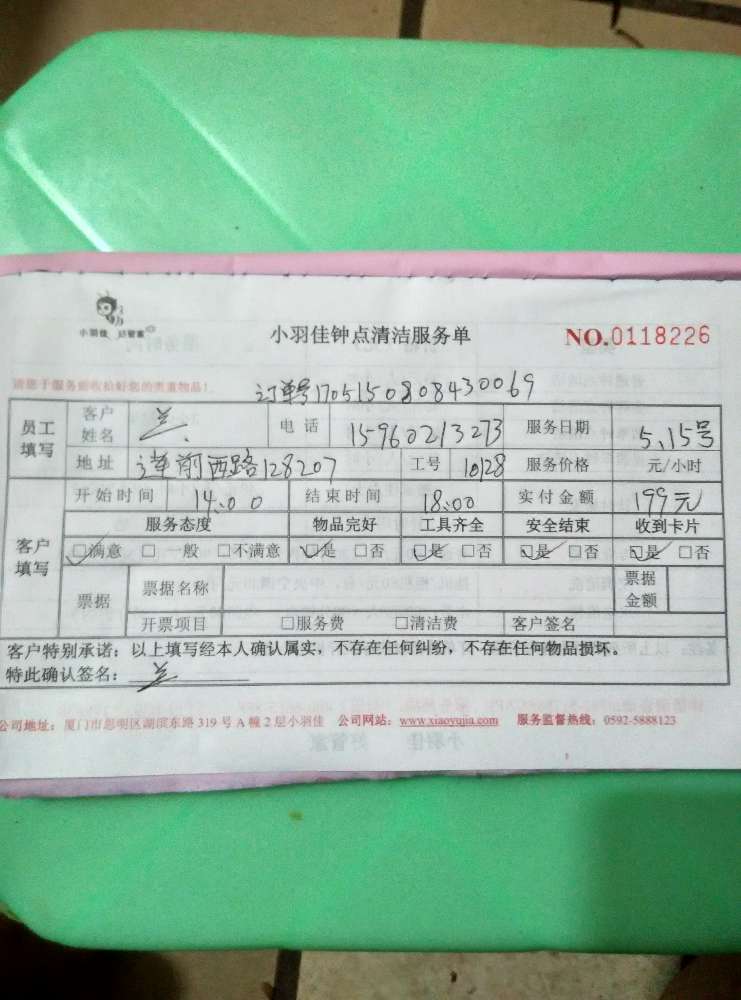 小羽佳 好管家
小羽佳钟点清洁服务单
NO.0118226
请您于服务前收拾好您的贵重物品!
订单号1705150808430069
员工填写 客户姓名 兰. 电话 15960213273 服务日期 5.15号
地址 莲前西路128207 工号 10128 服务价格 元/小时
客户填写 开始时间 14:00 结束时间 18:00 实付金额 199元
服务态度 物品完好 工具齐全 安全结束 收到卡片
☑满意 □一般 □不满意 ☑是 □否 ☑是 □否 ☑是 □否 ☑是 □否
票据 票据名称 票据金额
开票项目 □服务费 □清洁费 客户签名
客户特别承诺：以上填写经本人确认属实，不存在任何纠纷，不存在任何物品损坏。
特此确认签名：兰
公司地址：厦门市思明区湖滨东路319号A幢2层小羽佳 公司网站：www.xiaoyujia.com 服务监督热线：0592-5888123